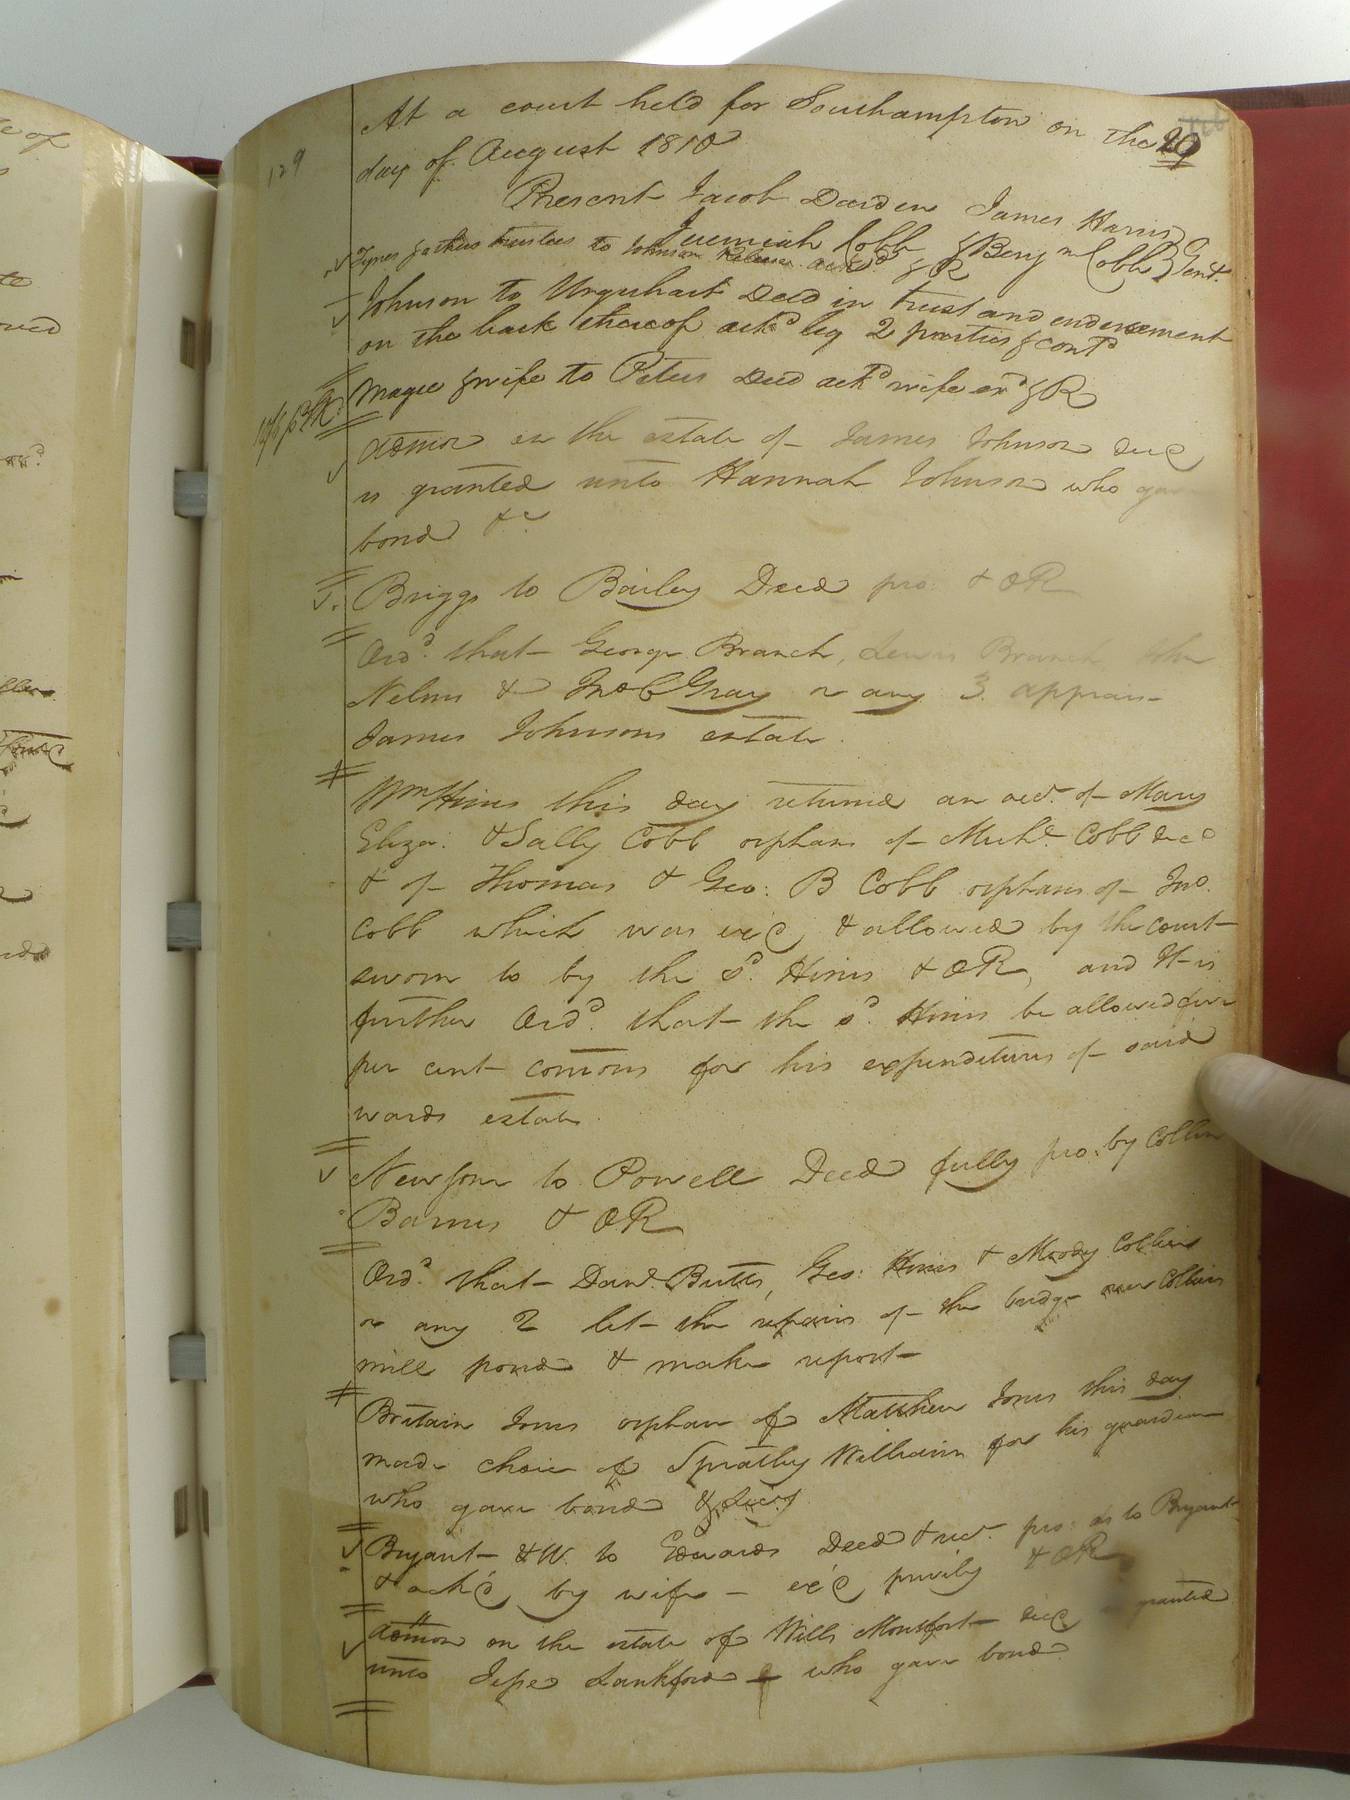 129
At a court held for Southampton on the 20
day of August 1810
Present Jacob Darden James Harris
Jeremiah Cobb & Benj'n Cobb Gent.
Tynes & others trustees to Johnson Release ack'd & R
Johnson to Urquhart Deed in trust and endorsement
on the back thereof ack'd by 2 parties & cont'd
Magee & wife to Peters Deed ack'd wife ex'd & R
Admon on the estate of James Johnson dec
is granted unto Hannah Johnson who gave
bond &c
Briggs to Bailey Deed pro. & OR
Ord'd that George Branch, Lewis Branch, John
Nelms & Jno B Gray or any 3 apprais
James Johnsons estate
Wm Hines this day returned an acct. of Mary
Eliza: & Sally Cobb orphans of Mich'l Cobb dec'd
& of Thomas & Geo: B Cobb orphans of Jno.
Cobb which was ex'd & allowed by the court
sworn to by the s'd Hines & OR, and It is
further Ord'd that the s'd Hines be allowed five
per cent comons for his expenditures of said
wards estate
Newsom to Powell Deed fully pro. by Collin
Barnes & OR
Ord'd that Dan'l Butts, Geo: Hines & Moody Collins
or any 2 let the repairs of the bridge over Collins
mill pond & make report
Britain Jones orphan of Matthew Jones this day
made choice of Spratley Williams for his guardian
who gave bond & Sec'y
Bryant & W. to Edwards Deed & rect. pro: as to Bryant
& ack'd by wife - ex'd privily & OR
Admon on the estate of Wills Montfort dec is granted
unto Jesse Lankford who gave bond